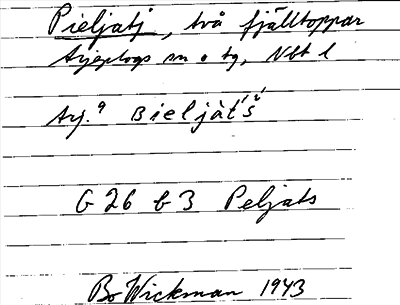 Pieljatj, två fjälltoppar
Arjeplogs sn o tg, Nbt l
Arj. 9 Bieljàt́š́
G 26 b 3 Peljats
Bo Wickman 1943